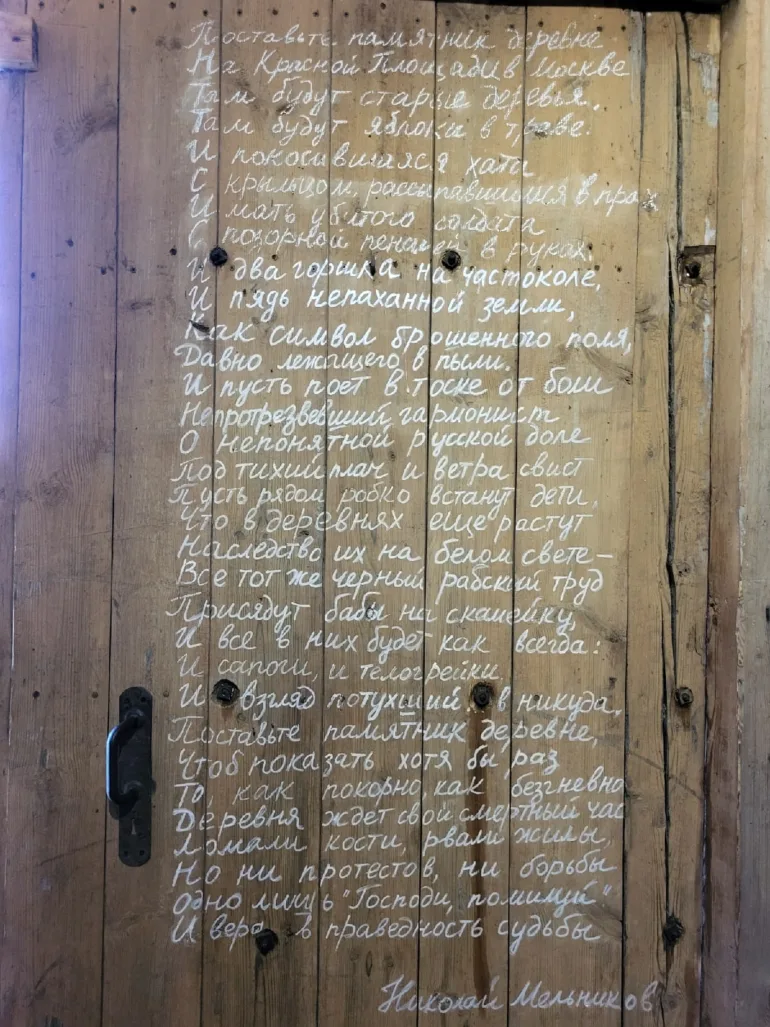 Поставьте памятник деревне
На Красной Площади в Москве
Там будут старые деревья,
Там будут яблоки в траве.
И покосившаяся хата
С крыльцом, рассыпавшимся в прах
И мать убитого солдата
С позорной пенсией в руках.
И два горшка на частоколе,
И пядь непаханной земли,
Как символ брошенного поля,
Давно лежащего в пыли.
И пусть поет в тоске от боли
Непротрезвевший гармонист
О непонятной русской доле
Под тихий плач и ветра свист
Пусть рядом робко встанут дети,
Что в деревнях еще растут
Наследство их на белом свете –
Все тот же черный рабский труд
Присядут бабы на скамейку,
И все в них будет как всегда:
И сапоги, и телогрейки
И взгляд потухший в никуда,
Поставьте памятник деревне,
Чтоб показать хотя бы раз
То, как покорно, как безгневно
Деревня ждет свой смертный час
Ломали кости, рвали жилы,
Но ни протестов, ни борьбы
одно лишь "Господи, помилуй"
И вера в праведность судьбы
Николай Мельников